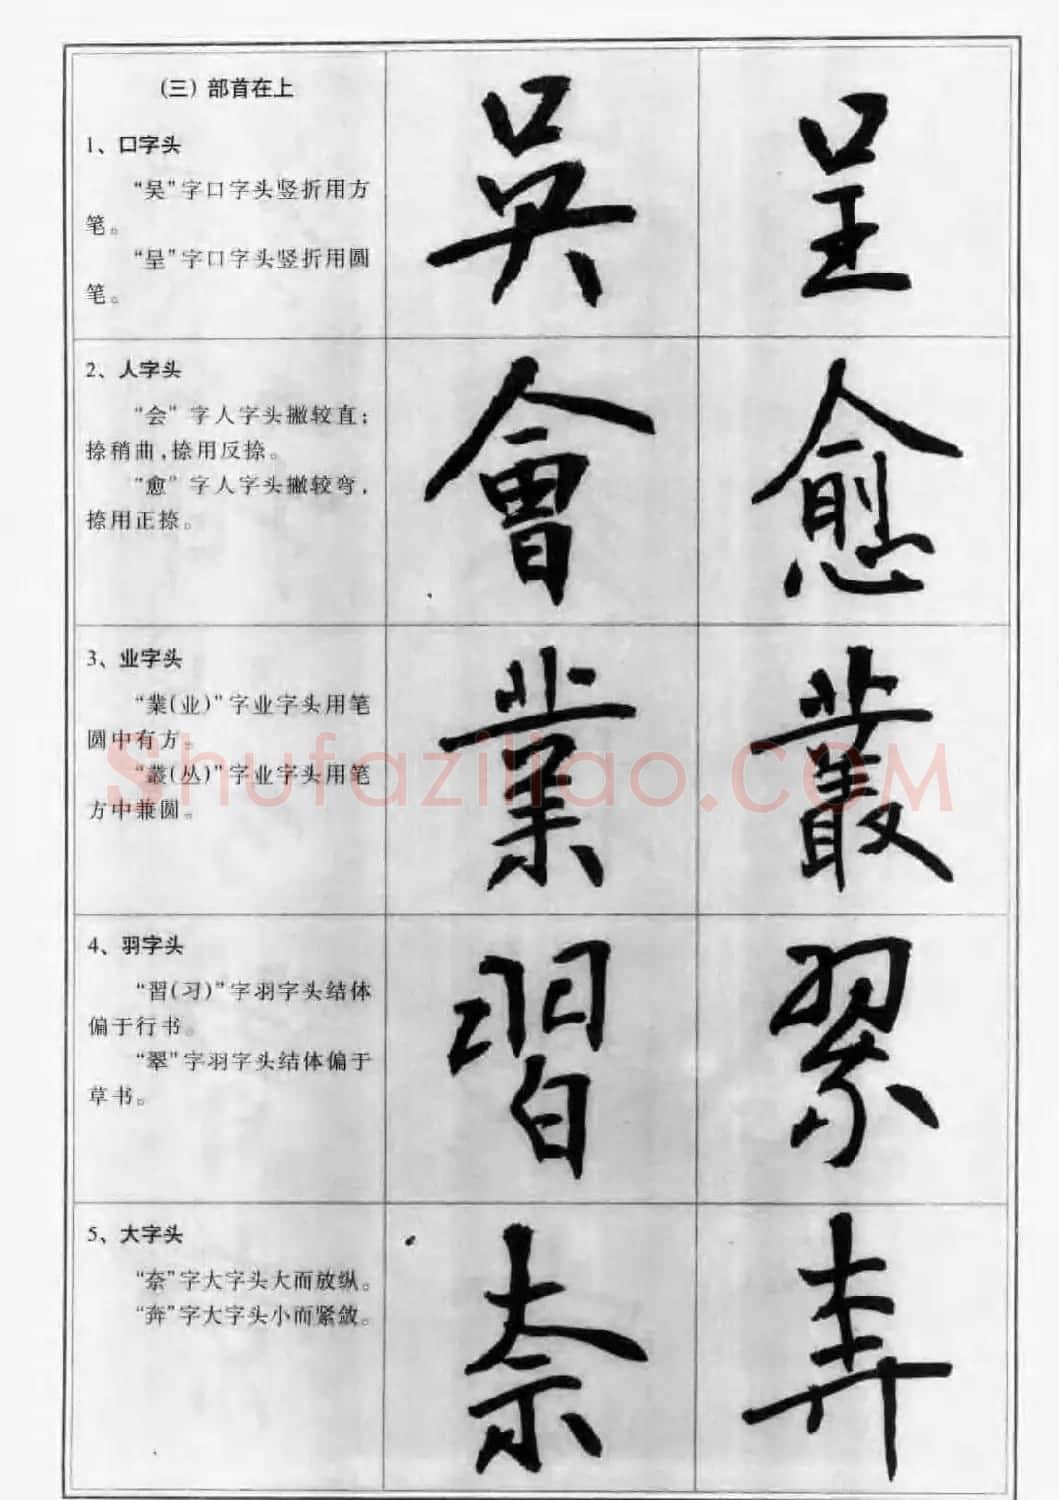 （三）部首在上
1、口字头
“吴”字口字头竖折用方
笔。
“呈”字口字头竖折用圆
笔。
吳 呈
2、人字头
“会”字人字头撇较直；
捺稍曲，捺用反捺。
“愈”字人字头撇较弯，
捺用正捺。
會 愈
3、业字头
“業(业)”字业字头用笔
圆中有方。
“叢(丛)”字业字头用笔
方中兼圆。
業 叢
4、羽字头
“習(习)”字羽字头结体
偏于行书。
“翠”字羽字头结体偏于
草书。
習
5、大字头
“奈”字大字头大而放纵。
“奔”字大字头小而紧敛。
奈 奔
Shufaziliao.com